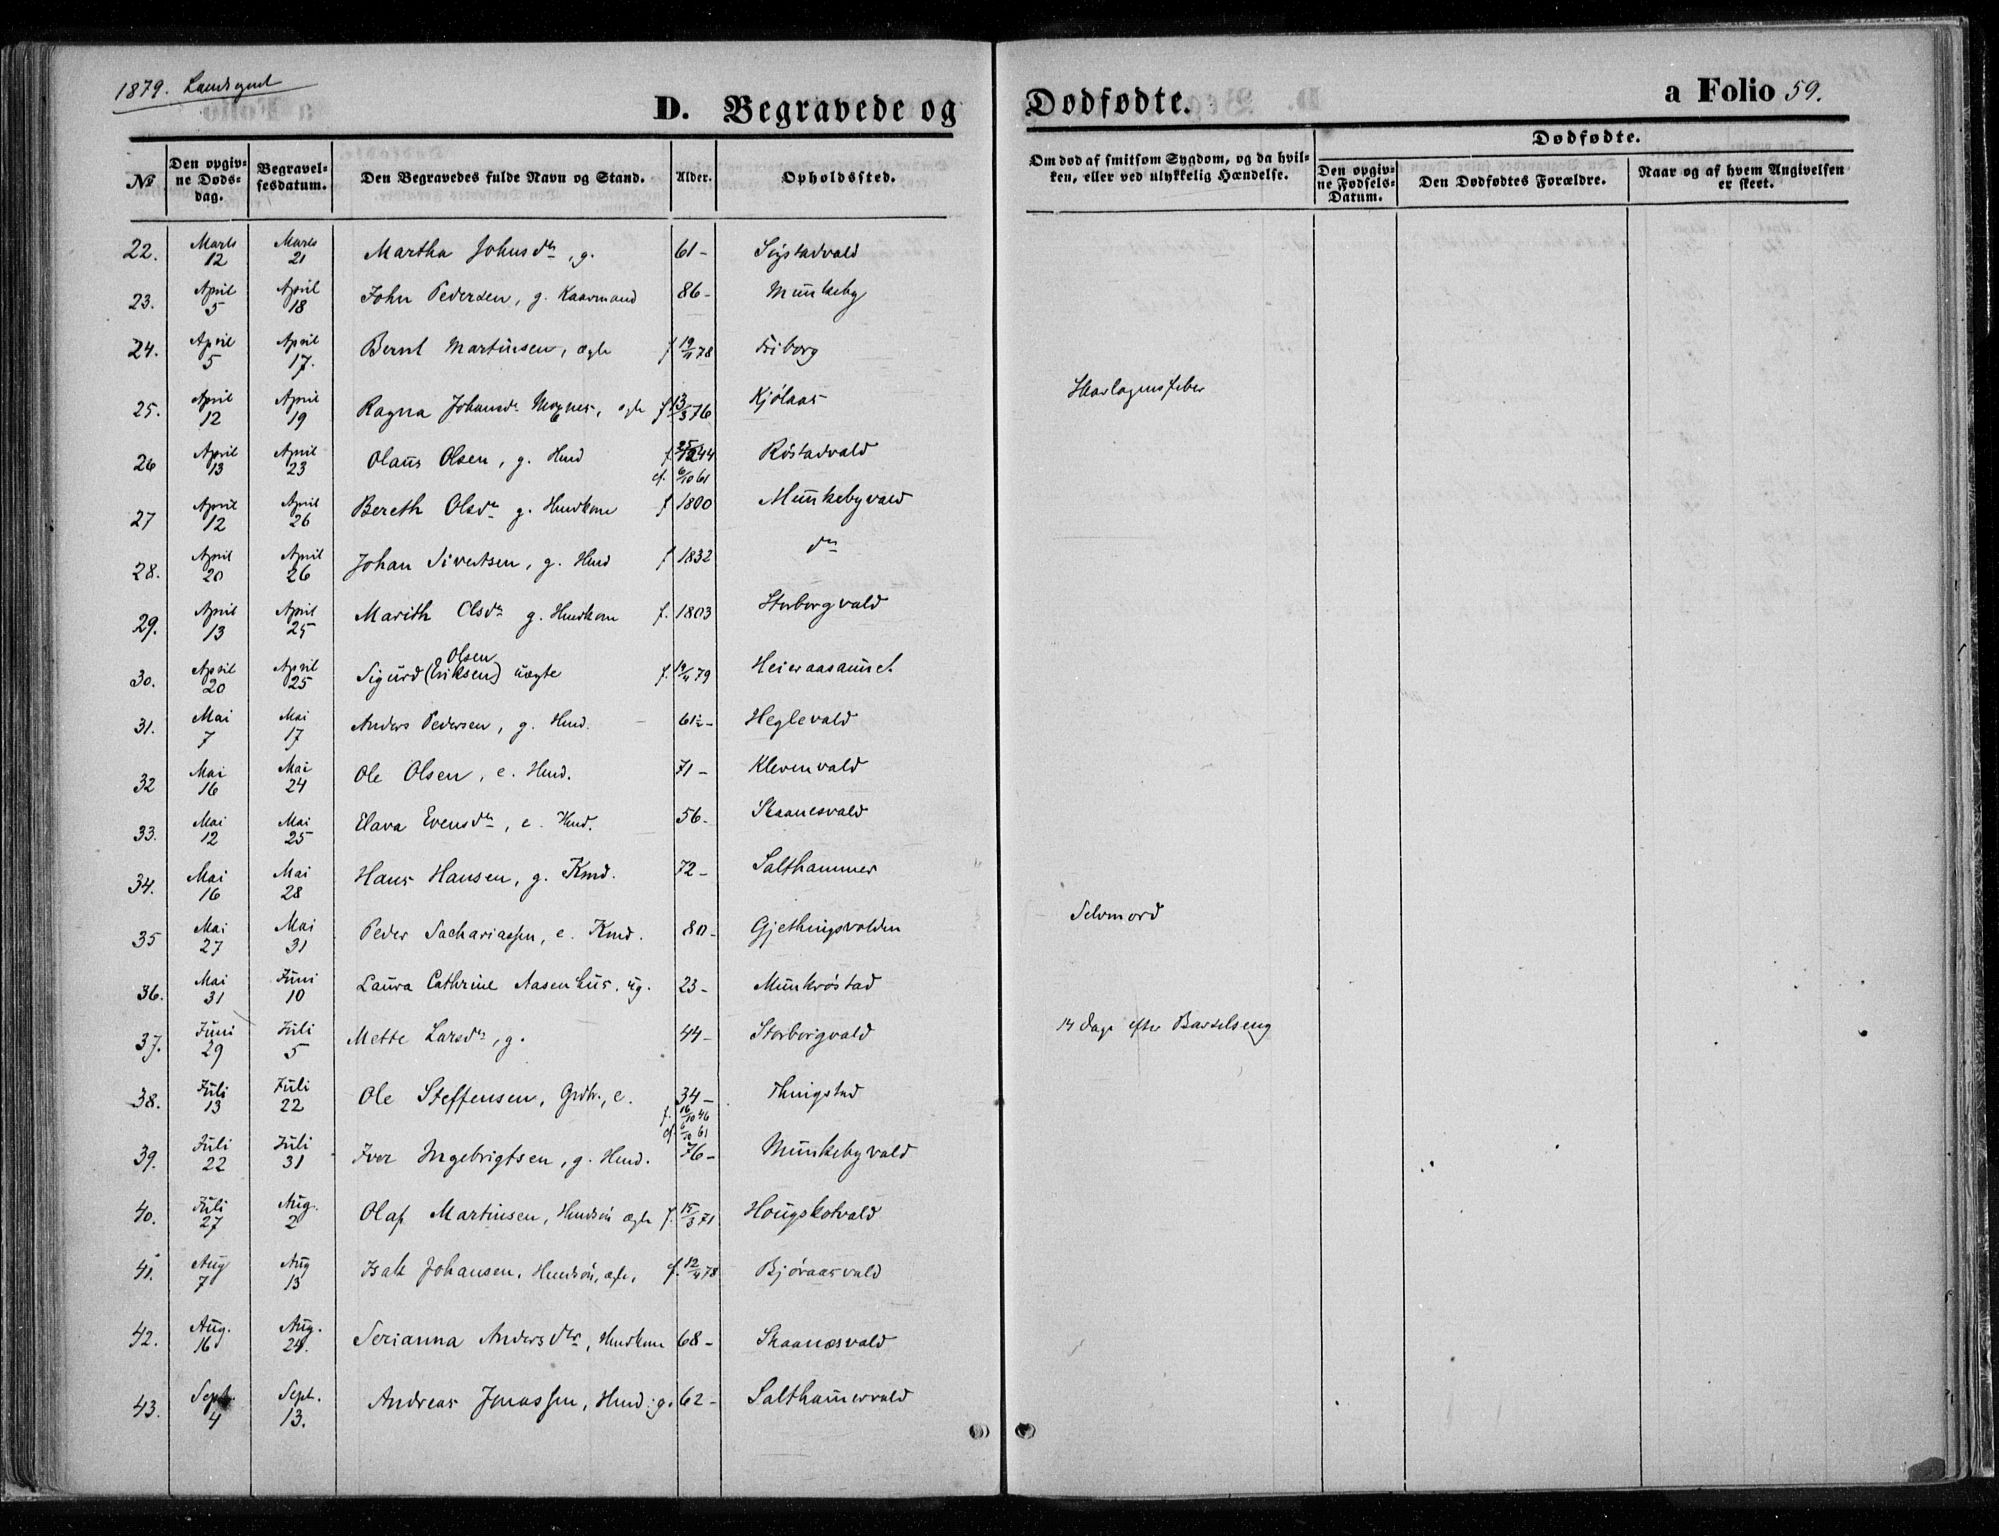 1879. Landsognet
D. Begravede og Dødfødte. a Folio 59.
№ | Den opgivne Dødsdag. | Begravelsesdatum. | Den Begravedes fulde Navn og Stand. | Alder. | Opholdssted. | Om død af smitsom Sygdom, og da hvilken, eller ved ulykkelig Hændelse. | Dødfødte. Den opgivne Fødsels-Datum. | Den Dødfødtes Forældre. | Naar og af hvem Angivelsen er skeet.
22. | Marts 12 | Marts 21 | Martha Johnsdtr, g. | 61 – | Søgstadvald
23. | April 5 | April 18 | John Pedersen, g. Kaarmand | 86 – | Munkeby
24. | April 5 | April 17. | Bernt Martinsen, ægte | f 19/11 78 | Friborg
25. | April 12 | April 19 | Ragna Johansdr Mognes, ægte | f 13/5 76 | Kjølaas | Skarlagensfeber
26 | April 13 | April 23 | Olaus Olsen, g. Hmd | f 25/12 44 cf. 6/10 61 | Røstadvald
27 | April 12 | April 26 | Bereth Olsdr g. Hmdkone | f 1800 | Munkebyvald
28. | April 20 | April 26 | Johan Sivertsen, g. Hmd | f 1832 | do
29. | April 13 | April 25 | Marith Olsdr g. Hmdkone | f. 1803 | Storborgvald
30. | April 20 | April 25 | Sigurd (Eriksen) Olsen uægte | f. 19/4 79 | Heieraasaunet
31. | Mai 7 | Mai 17 | Anders Pedersen, g. Hmd. | 61½ – | Heglevald
32 | Mai 16 | Mai 24 | Ole Olsen, e. Hmd. | 71 – | Klevenvald
33. | Mai 12 | Mai 25 | Elava Evensdtr, e. Hmd. | 56 – | Skaanesvald
34. | Mai 16 | Mai 28 | Hans Hansen, g. Kmd. | 72 – | Salthammer
35 | Mai 27 | Mai 31 | Peder Sachariassen, e. Kmd. | 80 – | Gjethingsvolden | Selvmord
36. | Mai 31 | Juni 10 | Laura Cathrine Aasenhus, ug. | 23 – | Munkrøstad
37. | Juni 29 | Juli 5 | Mette Larsdr, g. | 44 – | Storborgvald | 14 Dage efter Barselseng
38. | Juli 13 | Juli 22 | Ole Steffensen, Grdbr., e. | 34 – f. 16/10 46 cf. 6/10 61 | Thingstad
39. | Juli 22 | Juli 31 | Iver Ingebrigtsen, g. Hmd. | 76 – | Munkebyvald
40. | Juli 27 | Aug. 2 | Olaf Martinsen, Hmdsøn ægte | f. 15/3 71 | Hougskotvald
41. | Aug 7 | Aug 13 | Isak Johansen, Hmdsøn, æte, | f. 12/4 78 | Bjøraasvald
42. | Aug. 16 | Aug. 24. | Serianna Andersdtr, Hmdkone | 68 – | Skaanæsvald
43. | Sept. 4 | Sept. 13. | Andreas Jonassen, Hmd. g. | 62 – | Salthamervald